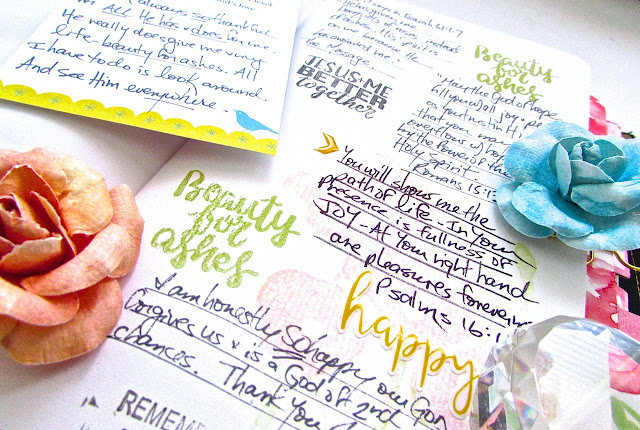 always so thankful
ALL He has + does for me.
He really does give me my
life beauty for ashes. All
I have to do is look around
And see Him everywhere.
Isaiah 61:1-7
Beauty
for
ashes
JESUS+ME
BETTER
together
"May the God of hope
fill you w/ all joy +
as you trust in H
that you may
overflow w/ hop
by the Power of the
Holy Spirit -
Romans 15:1
You will show me the
path of life - In Your
presence is fullness of
JOY - At Your right hand
are pleasures forevermo
Psalms 16:11
Beauty
for
ashes
happy
I am honestly So happy our God
forgives us + is a God of 2nd
chances. Thank You
REMEME